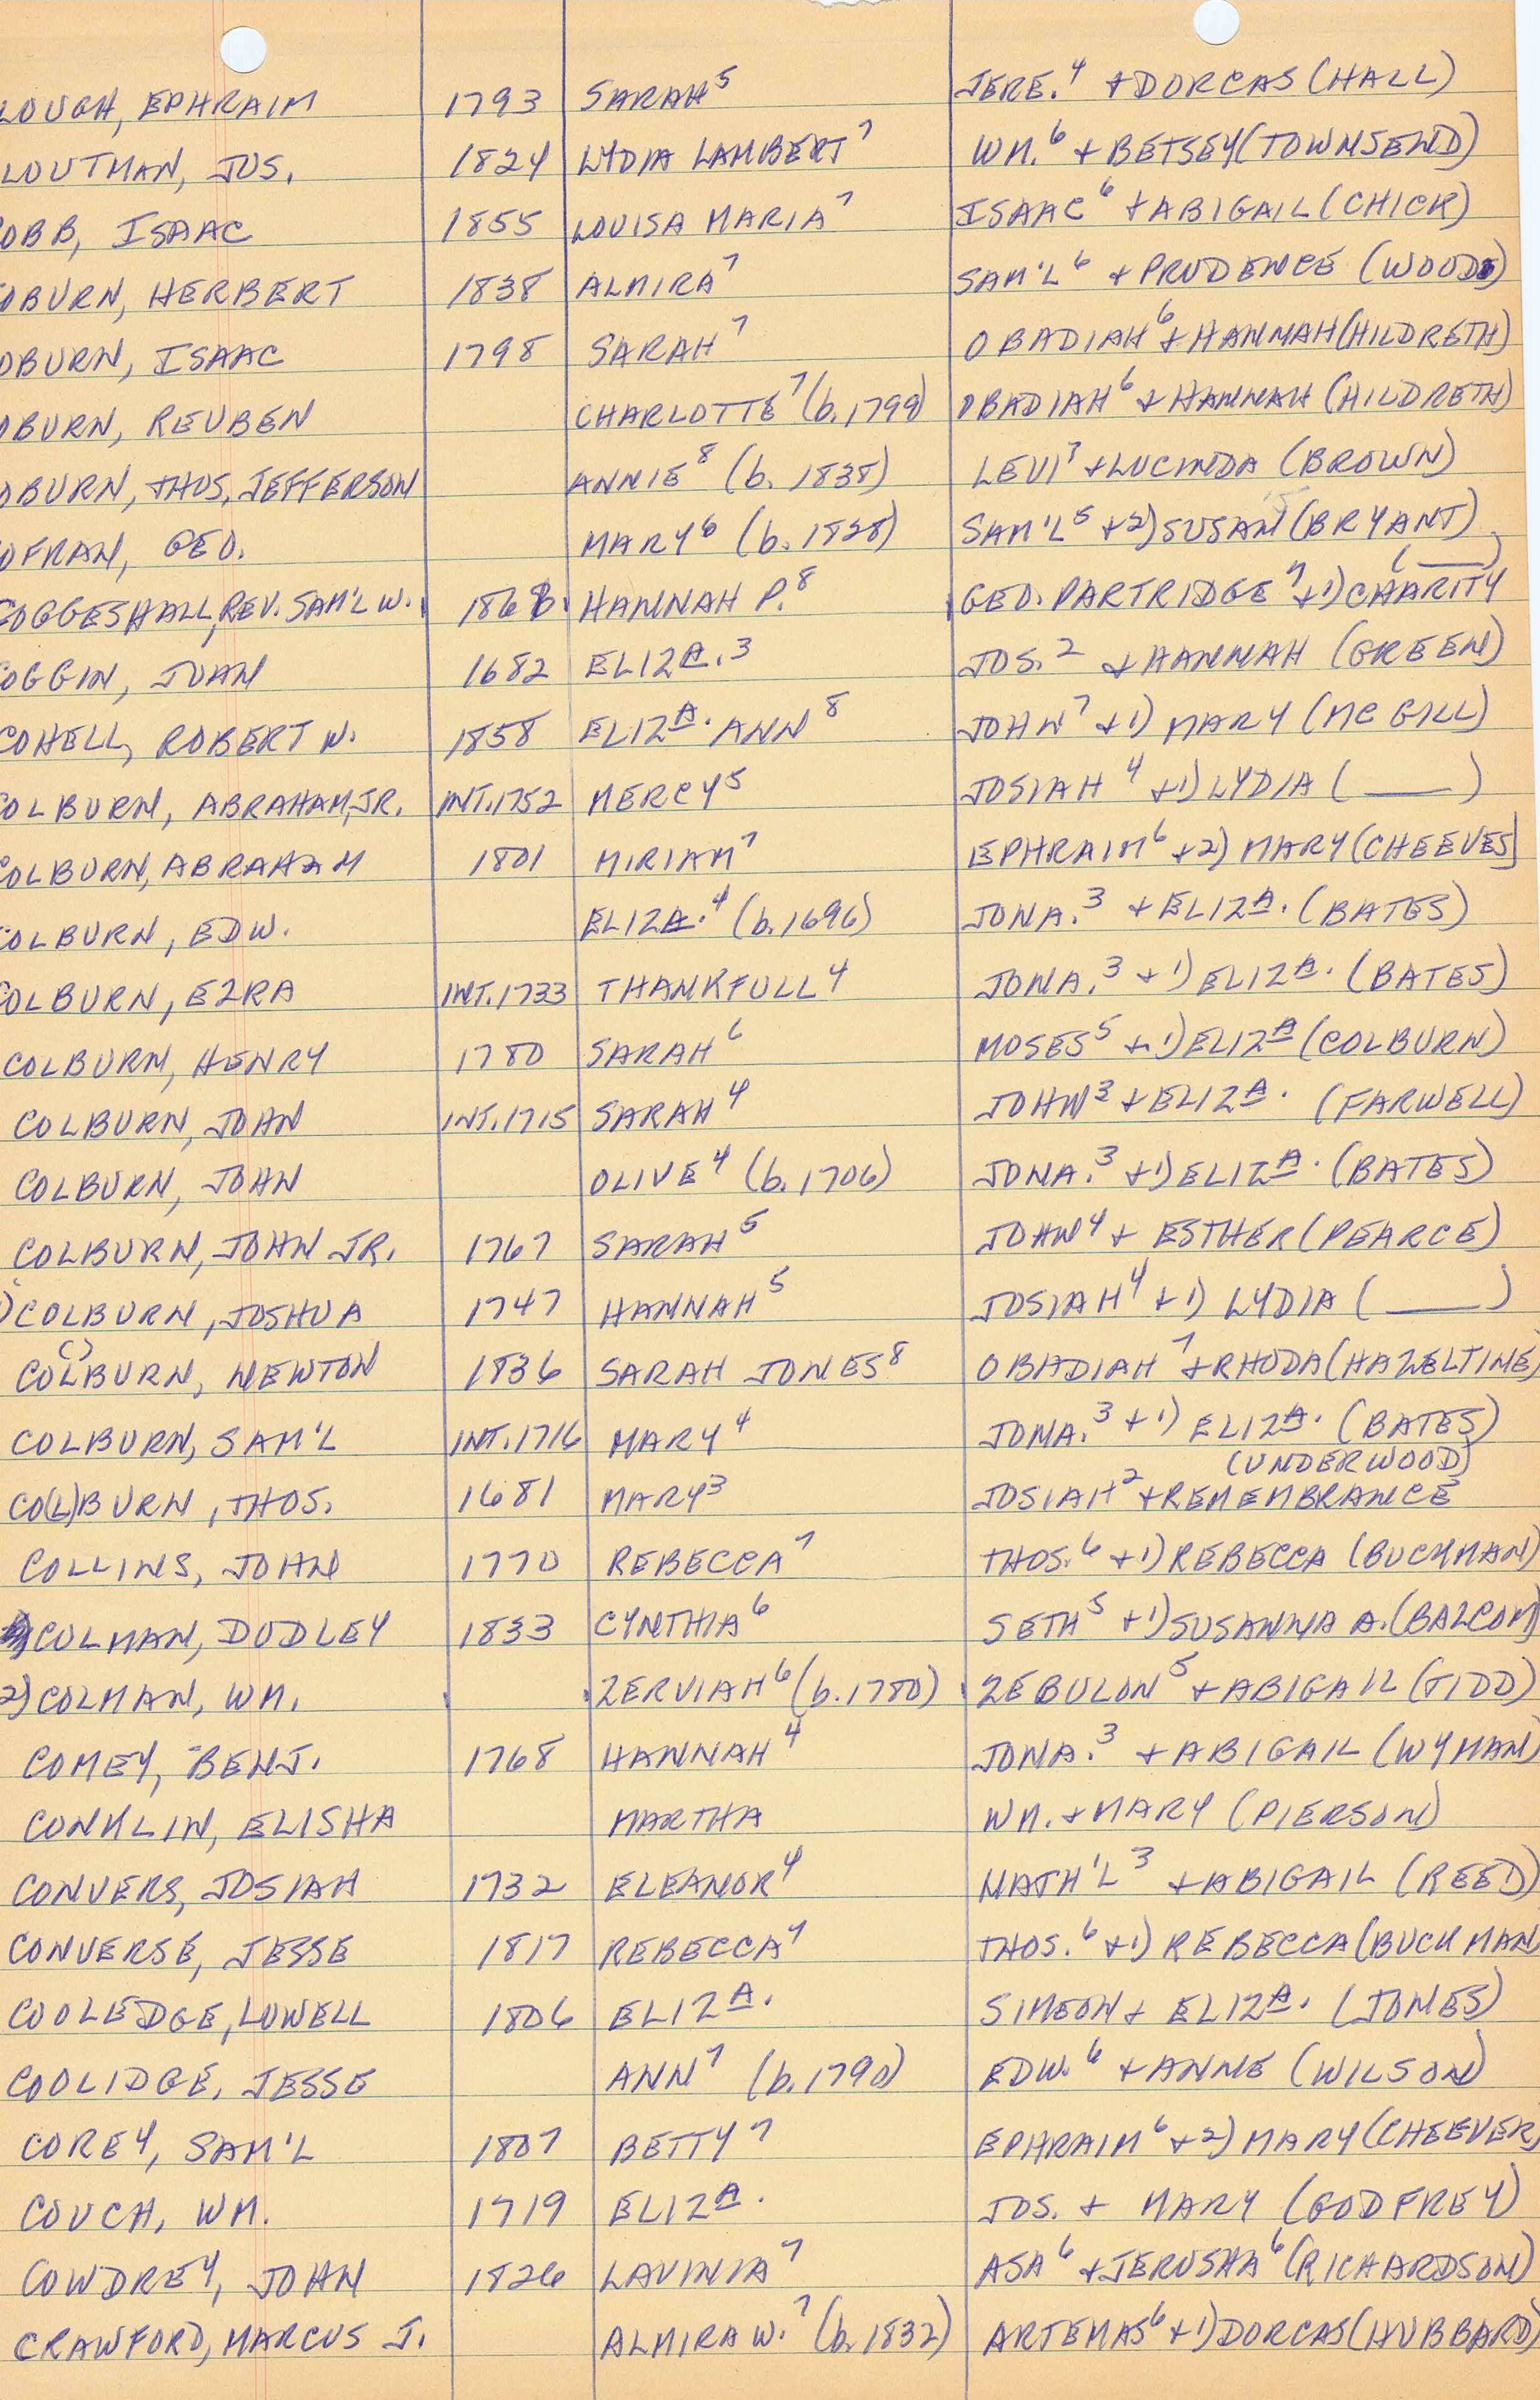 LOUGH, EPHRAIM 1793 SARAH⁵ JERE.⁴ + DORCAS (HALL)
LOUTMAN, JOS. 1824 LYDIA LAMBERT⁷ WM.⁶ + BETSEY (TOWNSEND)
OBB, ISAAC 1855 LOUISA MARIA⁷ ISAAC⁶ + ABIGAIL (CHICK)
OBURN, HERBERT 1838 ALMIRA⁷ SAM'L⁶ + PRUDENCE (WOODS)
OBURN, ISAAC 1798 SARAH⁷ OBADIAH⁶ + HANNAH (HILDRETH)
OBURN, REUBEN CHARLOTTE⁷ (b. 1799) OBADIAH⁶ + HANNAH (HILDRETH)
OBURN, THOS. JEFFERSON ANNIE⁸ (b. 1838) LEVI⁷ + LUCINDA (BROWN)
OFRAN, GEO. MARY⁶ (b. 1828) SAM'L⁵ + 2) SUSAN (BRYANT)
(___)
COGGESHALL, REV. SAM'L W. 1868 HANNAH P.⁸ GEO. PARTRIDGE⁷ + 1) CHARITY
OGGIN, JOHN 1682 ELIZA.³ JOS.² + HANNAH (GREEN)
COHELL, ROBERT N. 1858 ELIZA. ANN⁸ JOHN⁷ + 1) MARY (MC GILL)
COLBURN, ABRAHAM, JR. INT. 1752 MERCY⁵ JOSIAH⁴ + 1) LYDIA (___)
COLBURN, ABRAHAM 1801 MIRIAM⁷ EPHRAIM⁶ + 2) MARY (CHEEVES)
COLBURN, EDW. ELIZA.⁴ (b. 1696) JONA.³ + ELIZA. (BATES)
COLBURN, EZRA INT. 1733 THANKFULL⁴ JONA.³ + 1) ELIZA. (BATES)
COLBURN, HENRY 1780 SARAH⁶ MOSES⁵ + 1) ELIZA (COLBURN)
COLBURN, JOHN INT. 1715 SARAH⁴ JOHN³ + ELIZA. (FARWELL)
COLBURN, JOHN OLIVE⁴ (b. 1706) JONA.³ + 1) ELIZA. (BATES)
COLBURN, JOHN JR. 1767 SARAH⁵ JOHN⁴ + ESTHER (PEARCE)
) COLBURN, JOSHUA 1747 HANNAH⁵ JOSIAH⁴ + 1) LYDIA (___)
CO(L)BURN, NEWTON 1836 SARAH JONES⁸ OBADIAH⁷ + RHODA (HAZELTINE)
COLBURN, SAM'L INT. 1716 MARY⁴ JONA.³ + 1) ELIZA. (BATES)
(UNDERWOOD)
CO(L)BURN, THOS. 1681 MARY³ JOSIAH² + REMEMBRANCE
COLLINS, JOHN 1770 REBECCA⁷ THOS.⁶ + 1) REBECCA (BUCKMAN)
COLMAN, DUDLEY 1833 CYNTHIA⁶ SETH⁵ + 1) SUSANNA A. (BALCOM)
2) COLMAN, WM. ZERVIAH⁶ (b. 1780) ZEBULON⁵ + ABIGAIL (TIDD)
COMEY, BENJ. 1768 HANNAH⁴ JONA.³ + ABIGAIL (WYMAN)
CONKLIN, ELISHA MARTHA WM. + MARY (PIERSON)
CONVERS, JOSIAH 1732 ELEANOR⁴ NATH'L³ + ABIGAIL (REED)
CONVERSE, JESSE 1817 REBECCA⁷ THOS.⁶ + 1) REBECCA (BUCKMAN
COOLEDGE, LOWELL 1806 ELIZA. SIMEON + ELIZA. (JONES)
COOLIDGE, JESSE ANN⁷ (b. 1790) EDW.⁶ + ANNE (WILSON)
COREY, SAM'L 1807 BETTY⁷ EPHRAIM⁶ + 2) MARY (CHEEVER)
COUCH, WM. 1719 ELIZA. JOS. + MARY (GODFREY)
COWDREY, JOHN 1826 LAVINIA⁷ ASA⁶ + JERUSHA⁶ (RICHARDSON)
CRAWFORD, MARCUS J. ALMIRA W.⁷ (b. 1832) ARTEMAS⁶ + 1) DORCAS (HUBBARD)